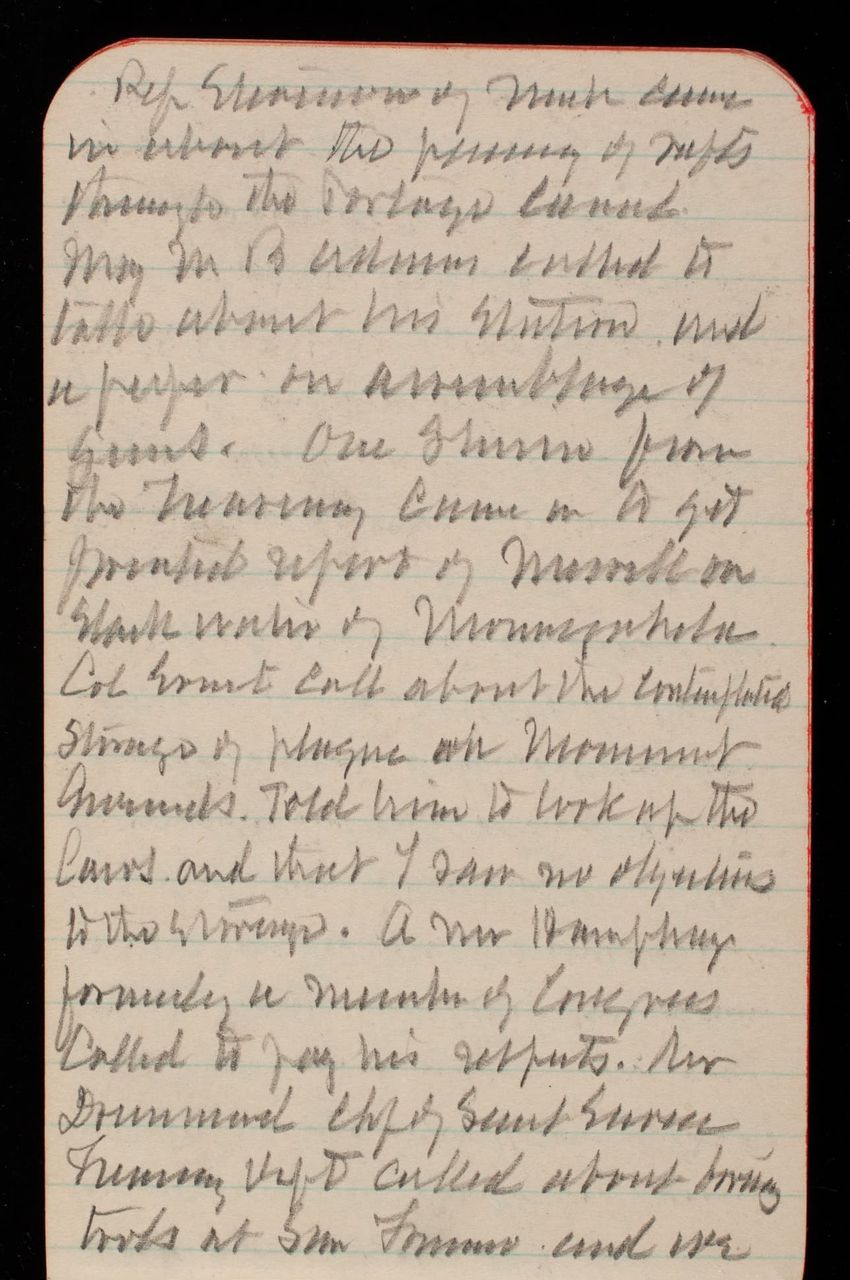 Rep Stevenson of Mich came
in about the passing of rafts
through the Portage Canal
Maj M B Adams called to
talk about his Station and
a paper on assemblage of
Guns. One from
the Treasury came in to get
printed report of Merrill on
Slack water of Monongahela
Col Ernst call about the contemplated
Storage of plague at Monument
Grounds. Told him to look up the
Laws and that I saw no objections
to the Storage. A Mr Humphrey
formerly a member of Congress
Called to pay his respects. Mr
Drummond Chf of Secret Service
Treasury Dept called about boring
tools at San Franco and we